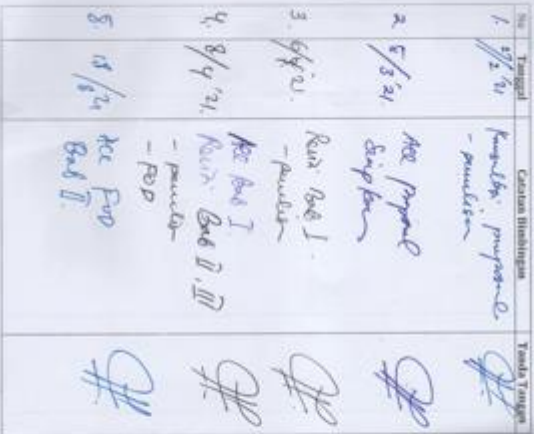 No Tanggal Catatan Bimbingan Tanda Tangan
1. 2 '21 Konsultasi proposal
- penulisan
2 8/3 '21 Acc proposal
Siapkan
3. 6/4 '21. Revisi Bab I.
- penulisan
4. 8/4 '21. Acc Bab I
Revisi Bab II, III
- penulisan
- FOD
5. 18 Acc FOD
Bab II.